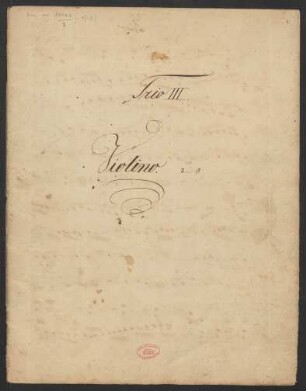 Trio III.
Violino.